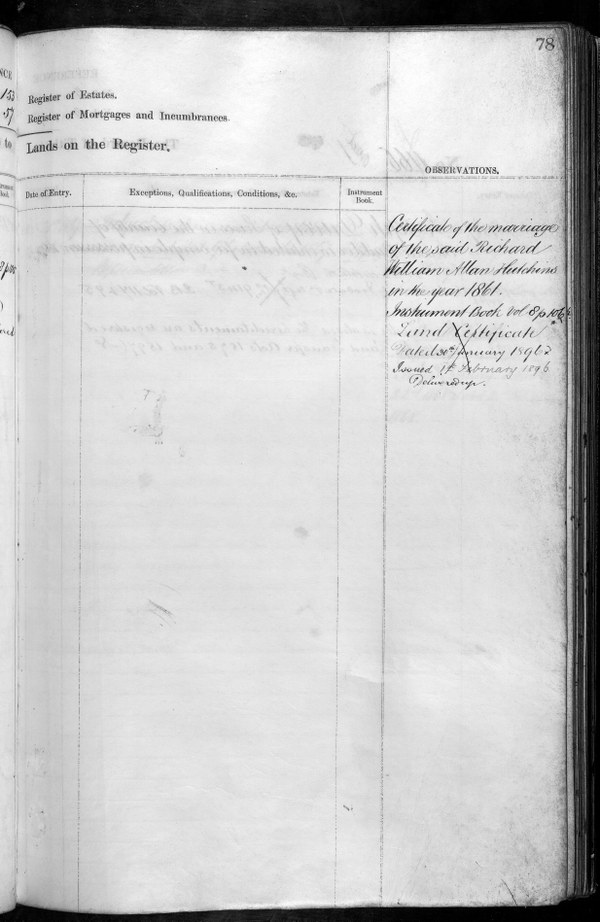 78
NCE
153
57
to
Register of Estates.
Register of Mortgages and Incumbrances.
Lands on the Register.
OBSERVATIONS.
Date of Entry.
Exceptions, Qualifications, Conditions, &c.
Instrument
Book.
Certificate of the marriage
of the said Richard
William Allan Hutchins
in the year 1861.
Instrument Book Vol 8 p 106
Land Certificate
Dated 30th January 1896
Issued 1st February 1896
Delivered up.